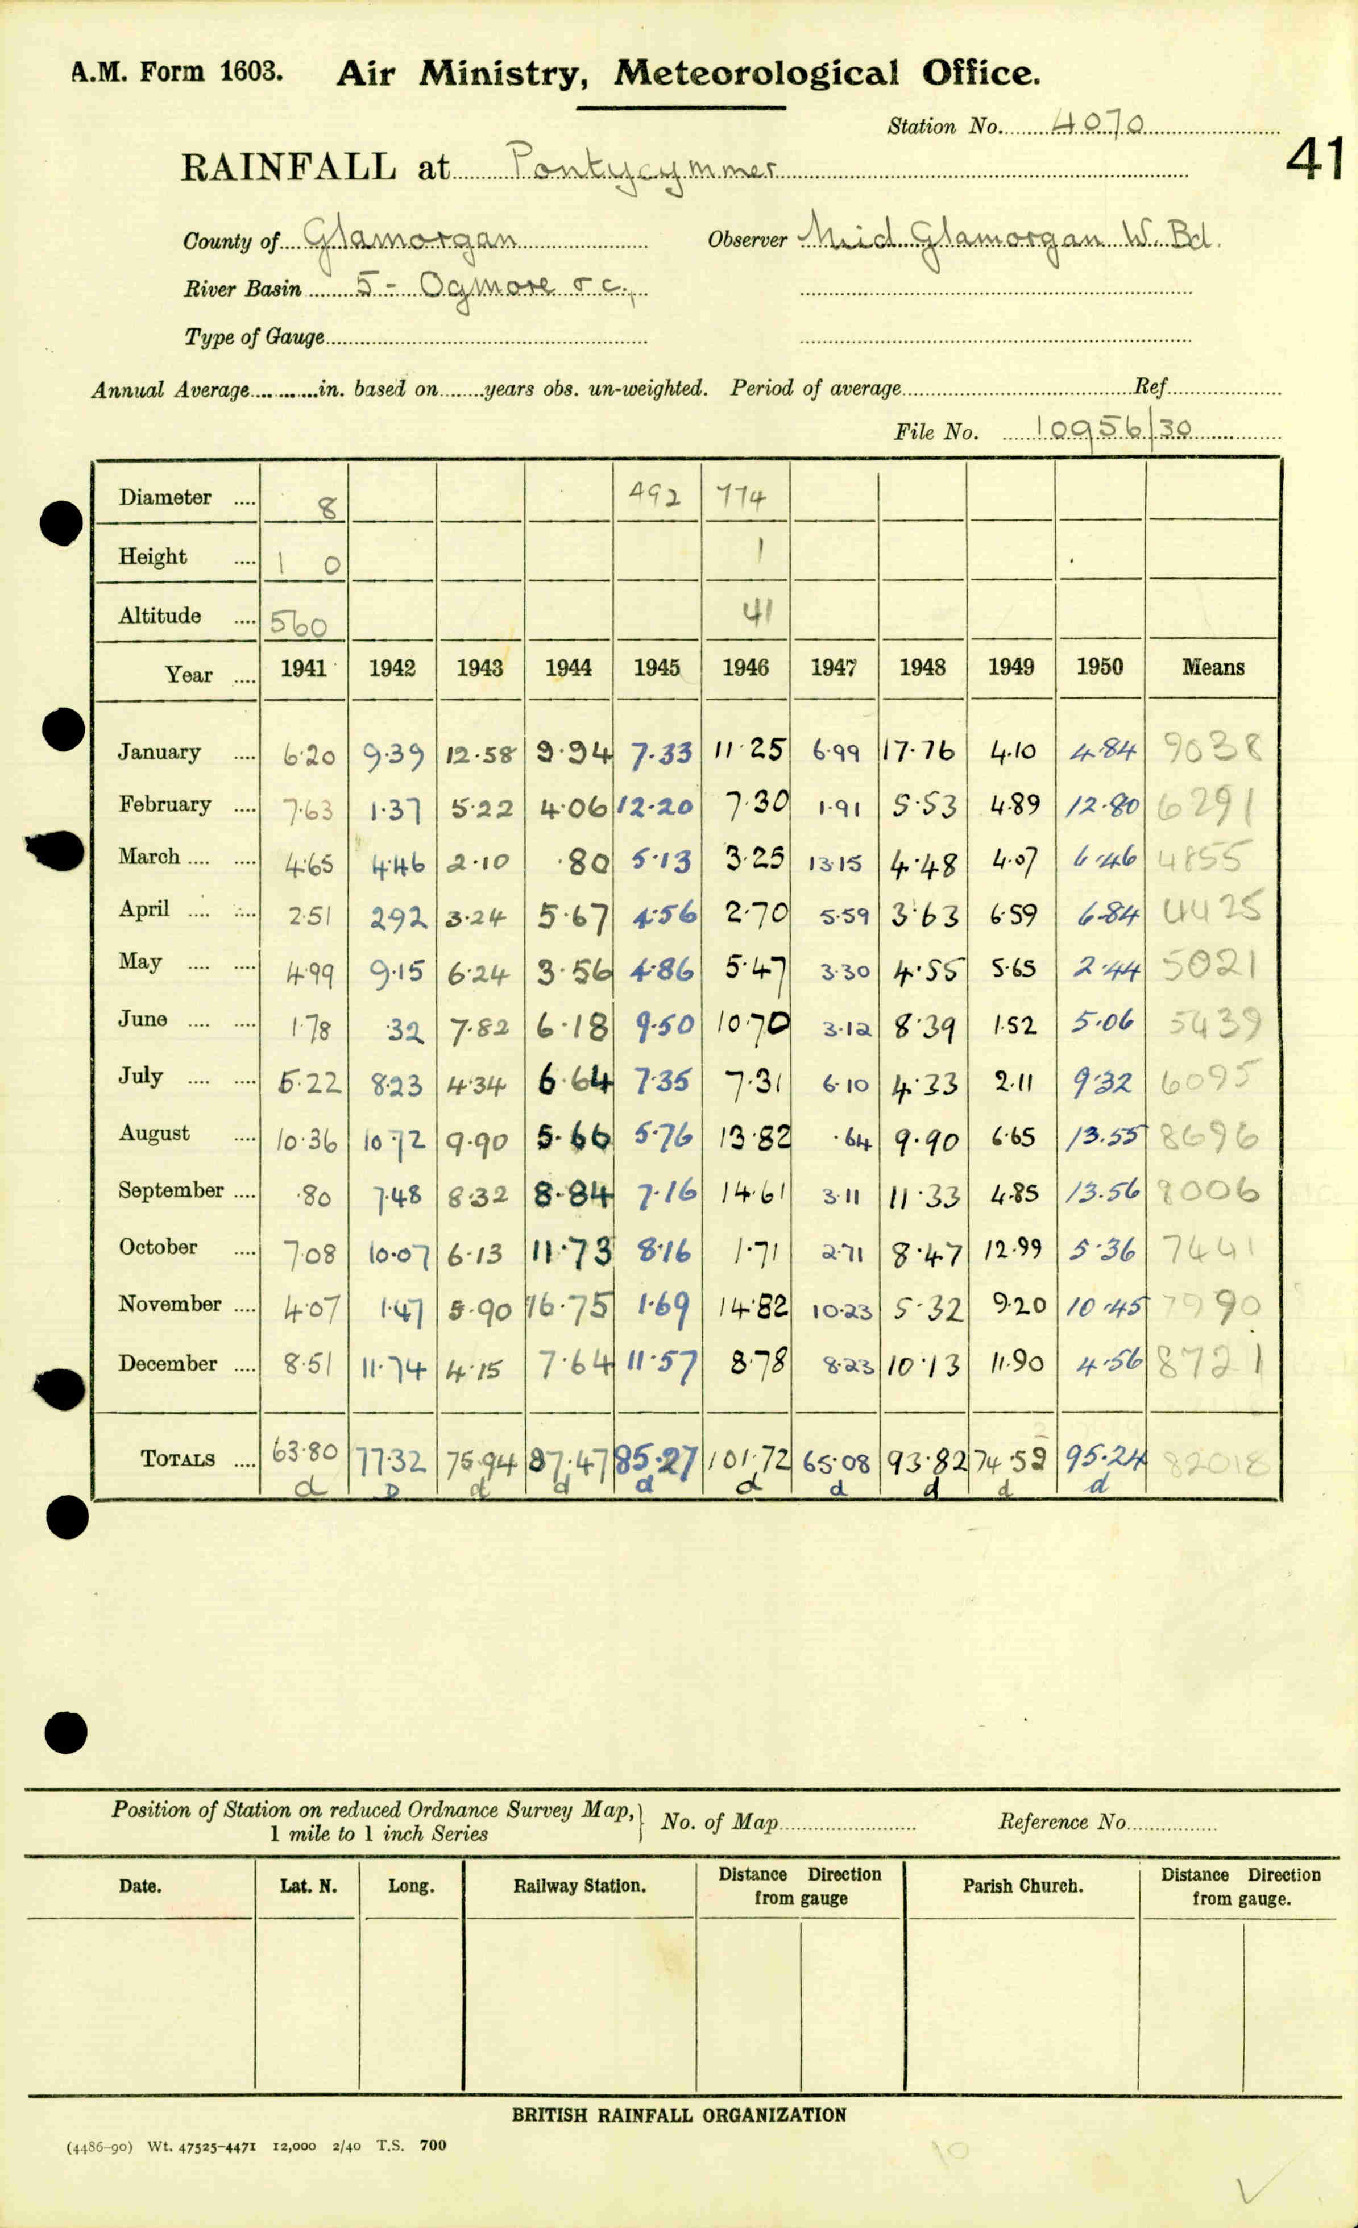 A.M. Form 1603. Air Ministry, Meteorological Office.
Station No. 4070
41
RAINFALL at Pontycymmer
County of Glamorgan Observer Mid Glamorgan W. Bd.
River Basin 5 - Ogmore &c.,
Type of Gauge
Annual Average in. based on years obs. un-weighted. Period of average Ref
File No. 10956/30
Diameter 8 492 774
Height 1 0 1
Altitude 560 41
Year 1941 1942 1943 1944 1945 1946 1947 1948 1949 1950 Means
January 6.20 9.39 12.58 9.94 7.33 11.25 6.99 17.76 4.10 4.84 9038
February 7.63 1.37 5.22 4.06 12.20 7.30 1.91 5.53 4.89 12.80 6291
March 4.65 4.46 2.10 .80 5.13 3.25 13.15 4.48 4.07 6.46 4855
April 2.51 292 3.24 5.67 4.56 2.70 5.59 3.63 6.59 6.84 4425
May 4.99 9.15 6.24 3.56 4.86 5.47 3.30 4.55 5.65 2.44 5021
June 1.78 .32 7.82 6.18 9.50 10.70 3.12 8.39 1.52 5.06 5439
July 5.22 8.23 4.34 6.64 7.35 7.31 6.10 4.33 2.11 9.32 6095
August 10.36 10.72 9.90 5.66 5.76 13.82 .64 9.90 6.65 13.55 8696
September .80 7.48 8.32 8.84 7.16 14.61 3.11 11.33 4.85 13.56 8006
October 7.08 10.07 6.13 11.73 8.16 1.71 2.71 8.47 12.99 5.36 7441
November 4.07 1.47 5.90 16.75 1.69 14.82 10.23 5.32 9.20 10.45 7990
December 8.51 11.74 4.15 7.64 11.57 8.78 8.23 10.13 11.90 4.56 8721
TOTALS 63.80 77.32 75.94 87.47 85.27 101.72 65.08 93.82 74.52 95.24 82018
d D d d d d d d d d
Position of Station on reduced Ordnance Survey Map, No. of Map Reference No.
1 mile to 1 inch Series
Date. Lat. N. Long. Railway Station. Distance Direction from gauge Parish Church. Distance Direction from gauge.
BRITISH RAINFALL ORGANIZATION
(4486-90) Wt. 47525-4471 12,000 2/40 T.S. 700
10